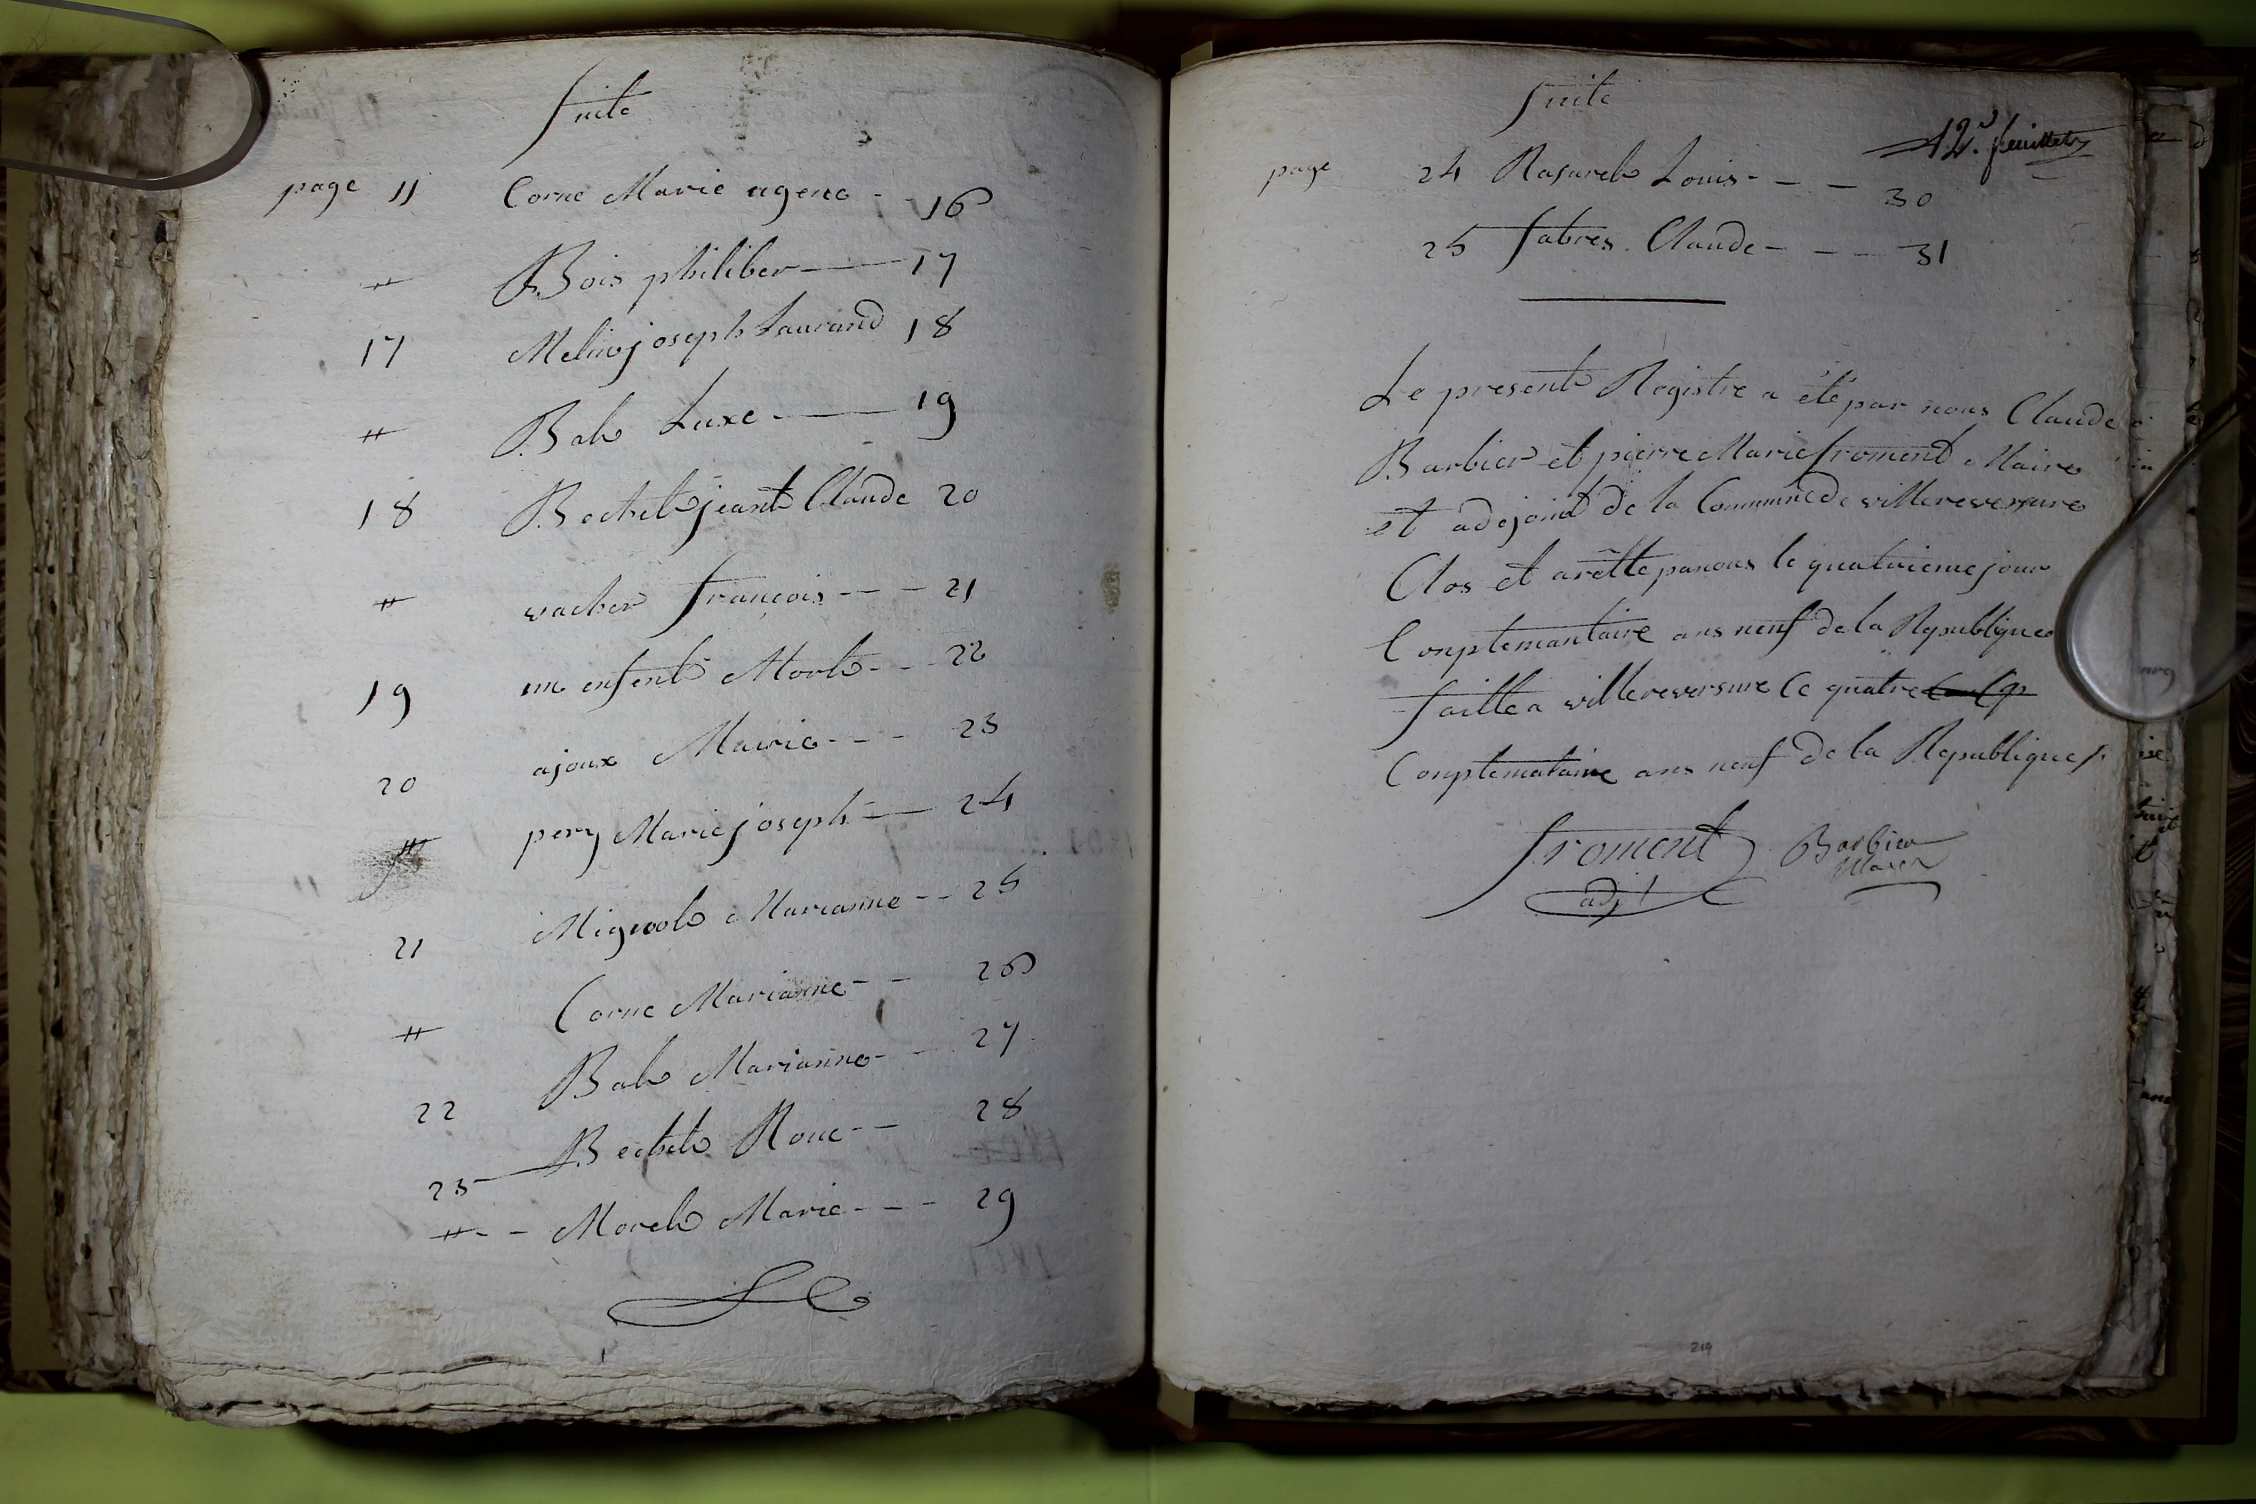 suite
page 11 Corne Marie agene - - 16
" Bois philiber — 17
17 Melin joseph Laurand 18
" Bal Luxe — 19
18 Bochet jeant Claude 20
" vacher françois - - - 21
19 un enfent Mort - - - 22
20 ajoux Marie - - - 23
" pery Marie joseph — 24
21 Mignot Marianne - - 25
" Corne Marianne - - 26
22 Bal Marianne - - 27
23 — Bechet - - 28
" - - Morel Marie - - - 29
suite
12e. feuillet
page 24 Rasurel Louis - - - 30
25 fabres. Claude - - - 31
Le present Registre a été par nous Claude
Barbier et pierre Marie froment Maire
et adejoint de la Commune de villereversure
Clos et arètte panous le quatrieme jour
Conptemantaire ans neuf de la Republique
faitte a villereversure Ce quatre
Conptemataire ans neuf de la Republique
froment Barbier
adjt Maire
219